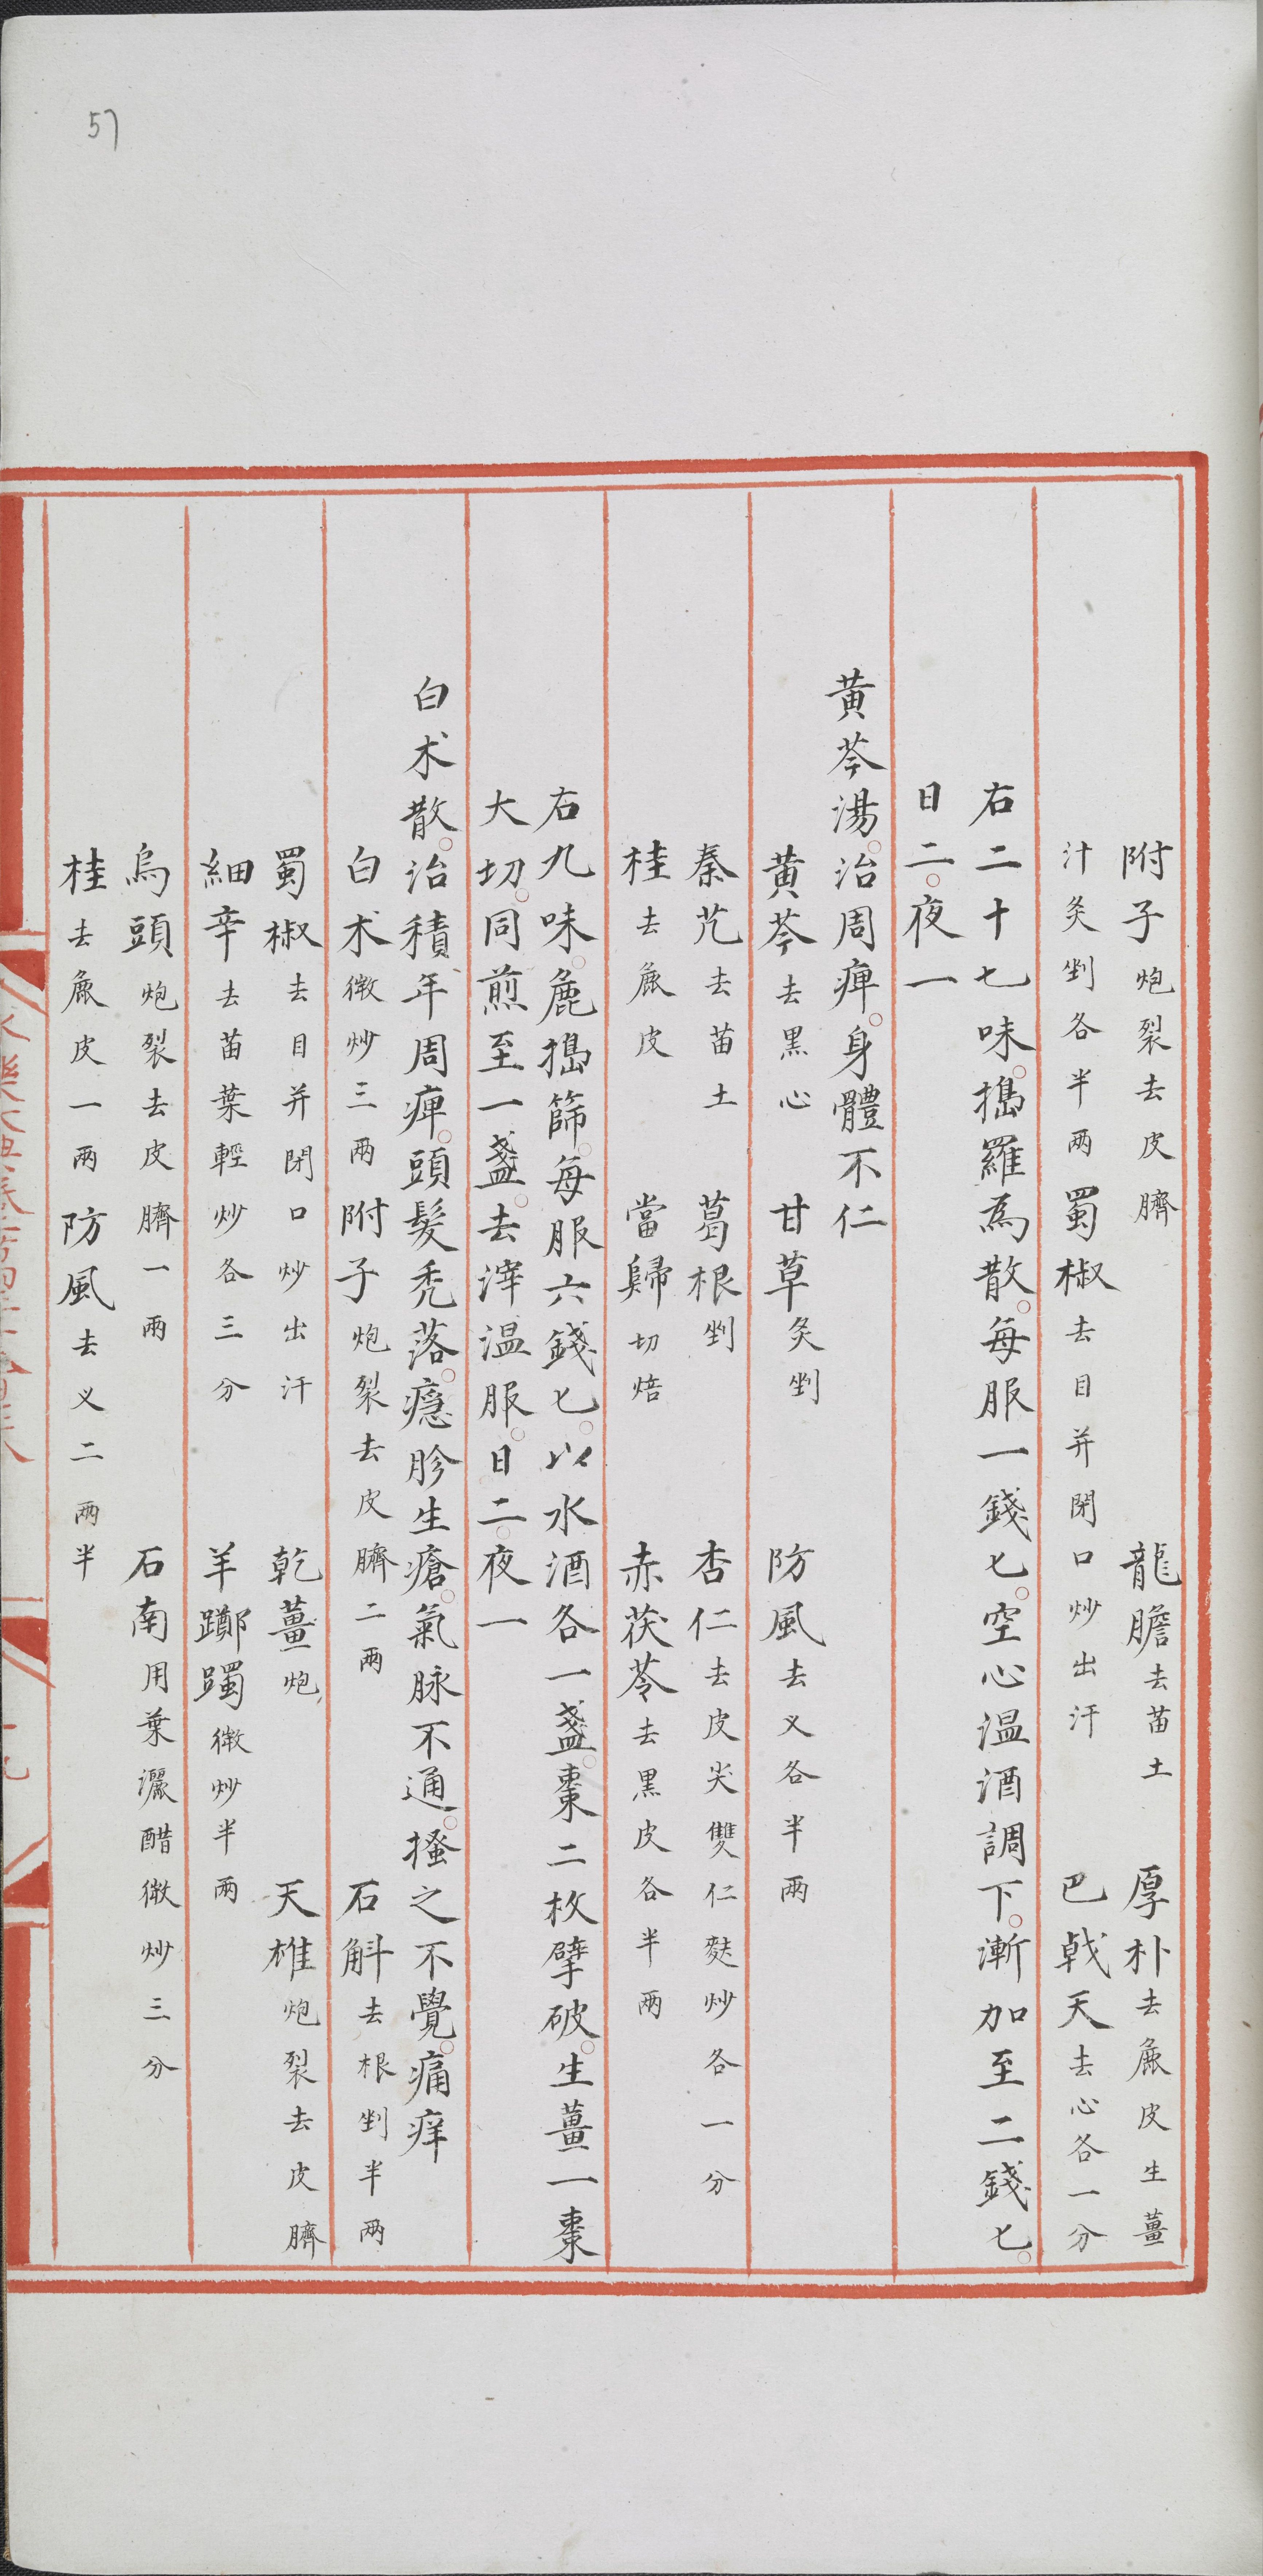 57
附子炮裂去皮臍 龍膽去苗土 厚朴去麁皮生薑
汁炙剉各半兩 蜀椒去目并閉口炒出汗 巴戟天去心各一分
右二十七味。搗羅為散。每服一錢匕。空心温酒調下。漸加至二錢匕。
日二。夜一
黄芩湯。治周痺。身體不仁
黄芩去黑心 甘草炙剉 防風去义各半兩
秦艽去苗土 葛根剉 杏仁去皮尖雙仁麩炒各一分
桂去麁皮 當歸切焙 赤茯苓去黑皮各半兩
右九味。麁搗篩。每服六錢匕。以水酒各一盞。棗二枚擘破。生薑一棗
大切。同煎至一盞。去滓温服。日二。夜一
白朮散。治積年周痺。頭髮秃落。癮胗生瘡。氣脉不通。搔之不覺。痛痒
白朮微炒三兩 附子炮裂去皮臍二兩 石斛去根剉半兩
蜀椒去目并閉口炒出汗 乾薑炮 天雄炮裂去皮臍
細辛去苗葉輕炒各三分 羊躑躅微炒半兩
烏頭炮裂去皮臍一兩 石南用葉灑醋微炒三分
桂去麁皮一兩 防風去义二兩半